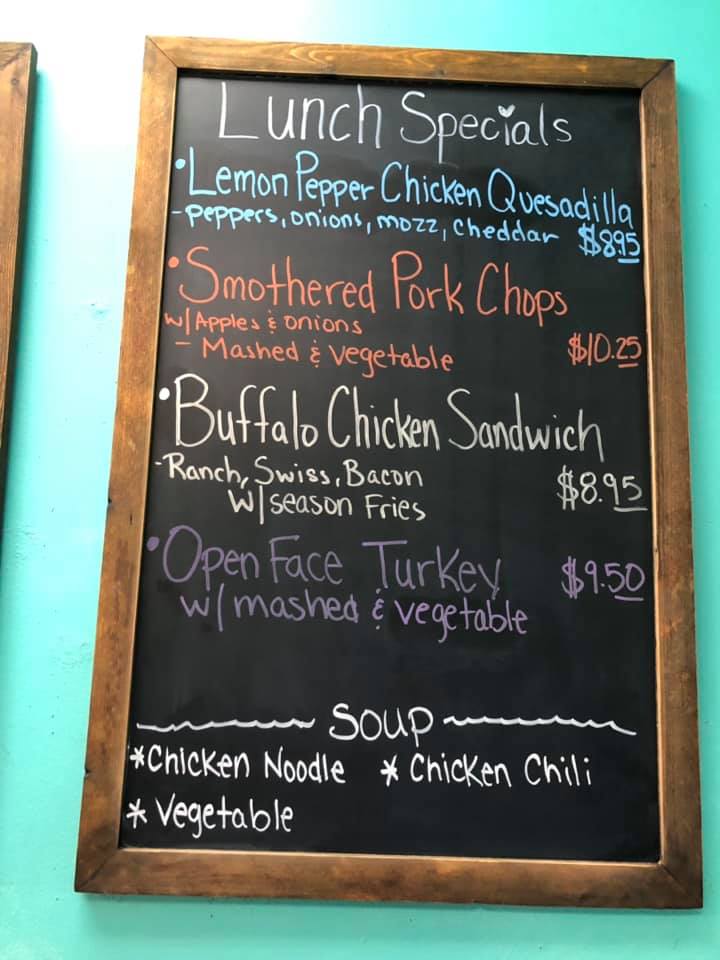 Lunch Specials
• Lemon Pepper Chicken Quesadilla
- peppers, onions, mozz, cheddar $8.95
• Smothered Pork Chops
w/ Apples & onions
- Mashed & vegetable $10.25
• Buffalo Chicken Sandwich
- Ranch, Swiss, Bacon $8.95
w/ season Fries
• Open Face Turkey $9.50
w/ mashed & vegetable
Soup
* Chicken Noodle * Chicken Chili
* Vegetable